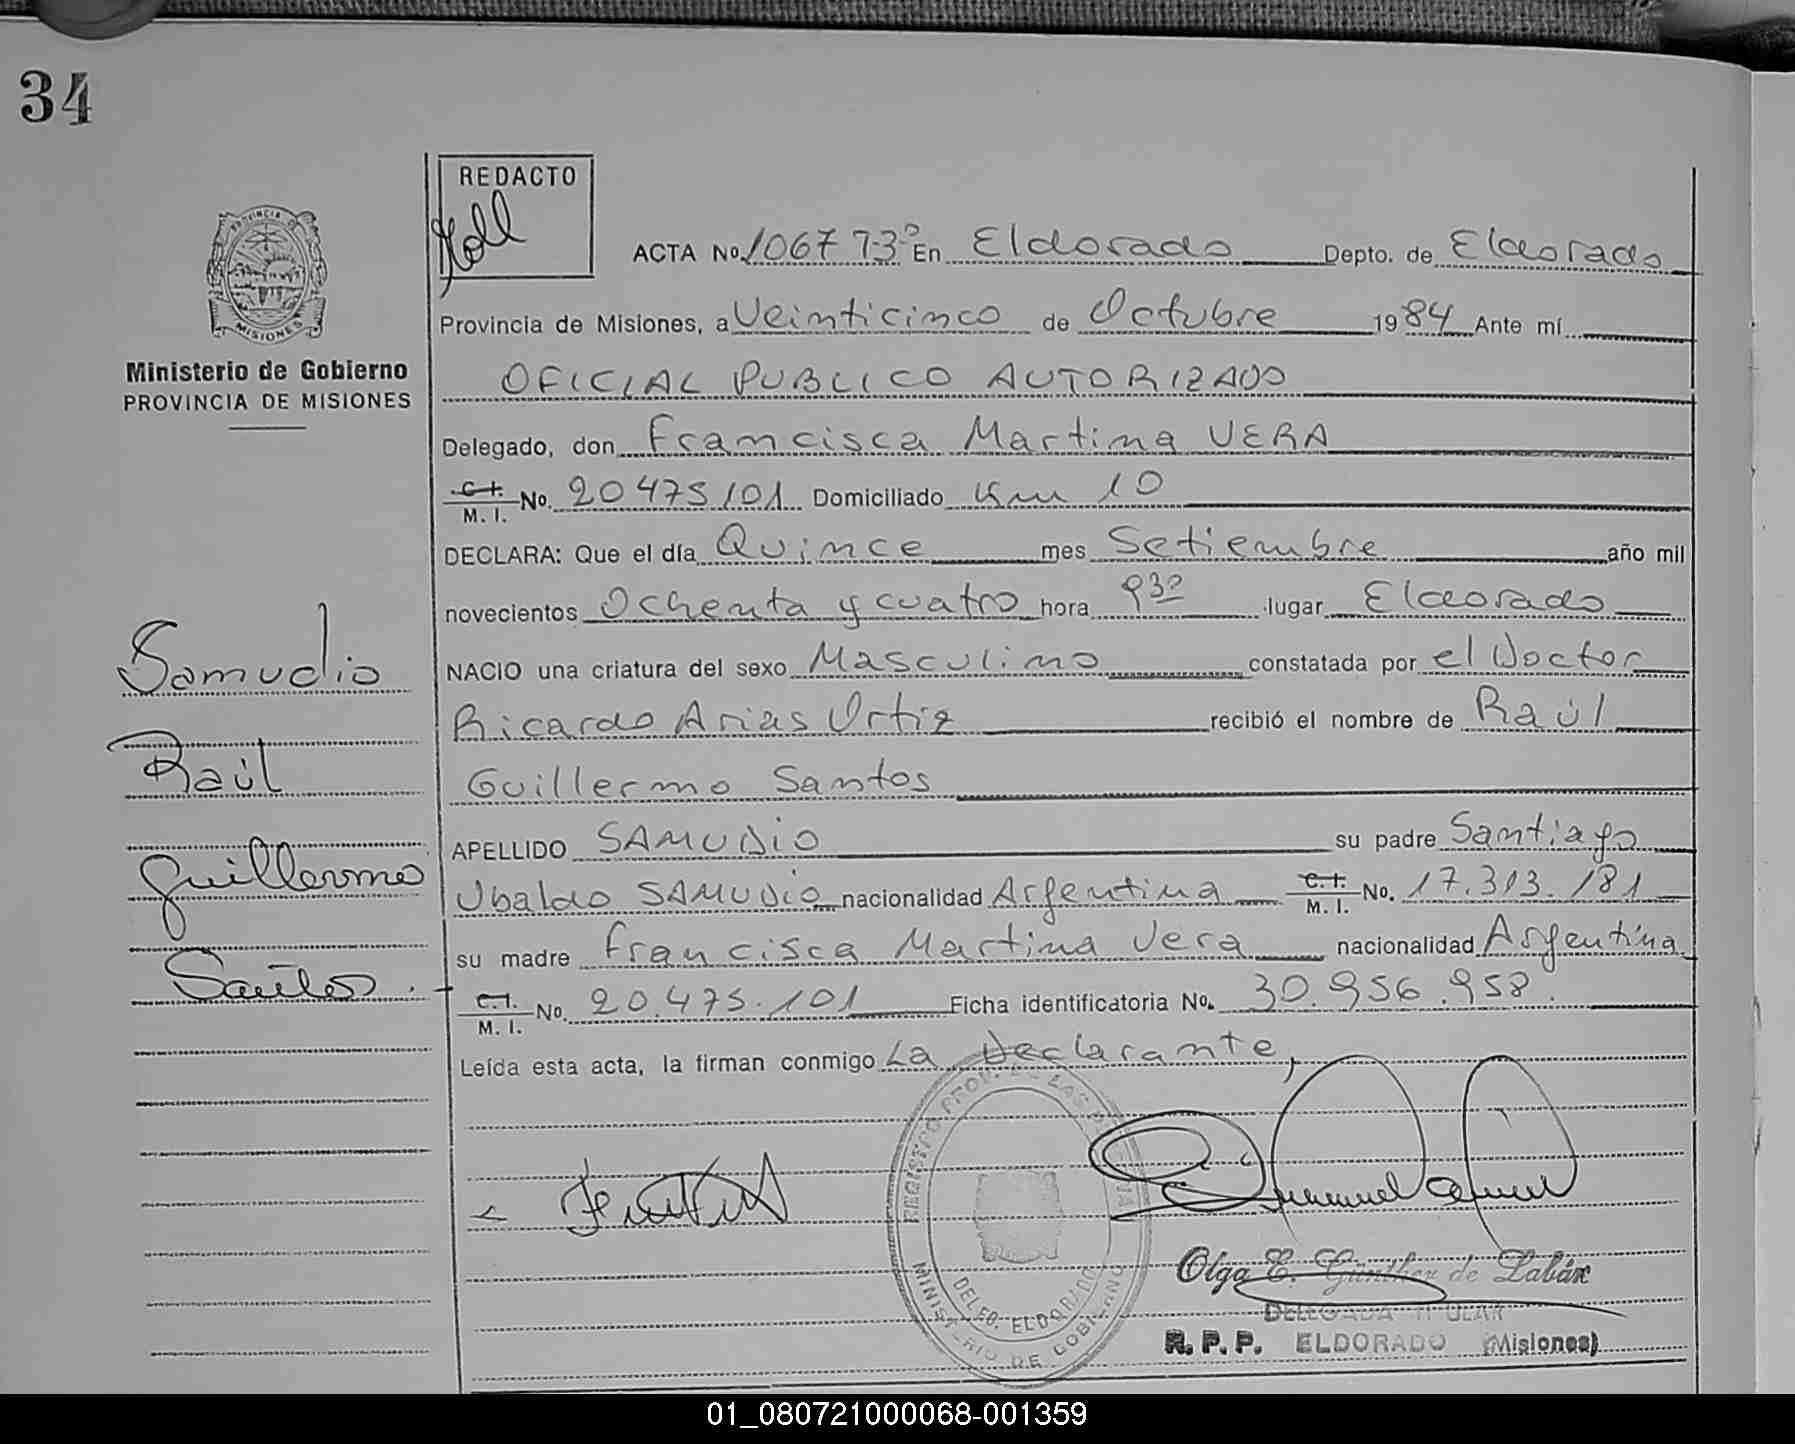 34
REDACTO
ACTA No. 1067 T-3º En Eldorado Depto. de Eldorado
Provincia de Misiones, a Veinticinco de Octubre 1984 Ante mí
OFICIAL PUBLICO AUTORIZADO
Delegado, don Francisca Martina VERA
C.I. M. I. No. 20475101 Domiciliado Km 10
DECLARA: Que el día Quince mes Setiembre año mil
novecientos Ochenta y cuatro hora 930 lugar Eldorado
NACIO una criatura del sexo Masculino constatada por el Doctor
Ricardo Arias Ortiz recibió el nombre de Raúl
Guillermo Santos
APELLIDO SAMUDIO su padre Santiago
Ubaldo SAMUDIO nacionalidad Argentina C.I. M. I. No. 17.313.181
su madre Francisca Martina Vera nacionalidad Argentina
C.I. M. I. No. 20.475.101 Ficha identificatoria No. 30.956.958.
Leída esta acta, la firman conmigo La Declarante,
PROVINCIA DE
MISIONES
Ministerio de Gobierno
PROVINCIA DE MISIONES
Samudio
Raúl
Guillermo
Santos.
REGISTRO PROV. DE LAS
DELEG. ELDORADO
MINISTERIO DE GOBIERNO
Olga E. Günther de Labán
DELEGADA TITULAR
R. P. P. ELDORADO (Misiones)
01_080721000068-001359